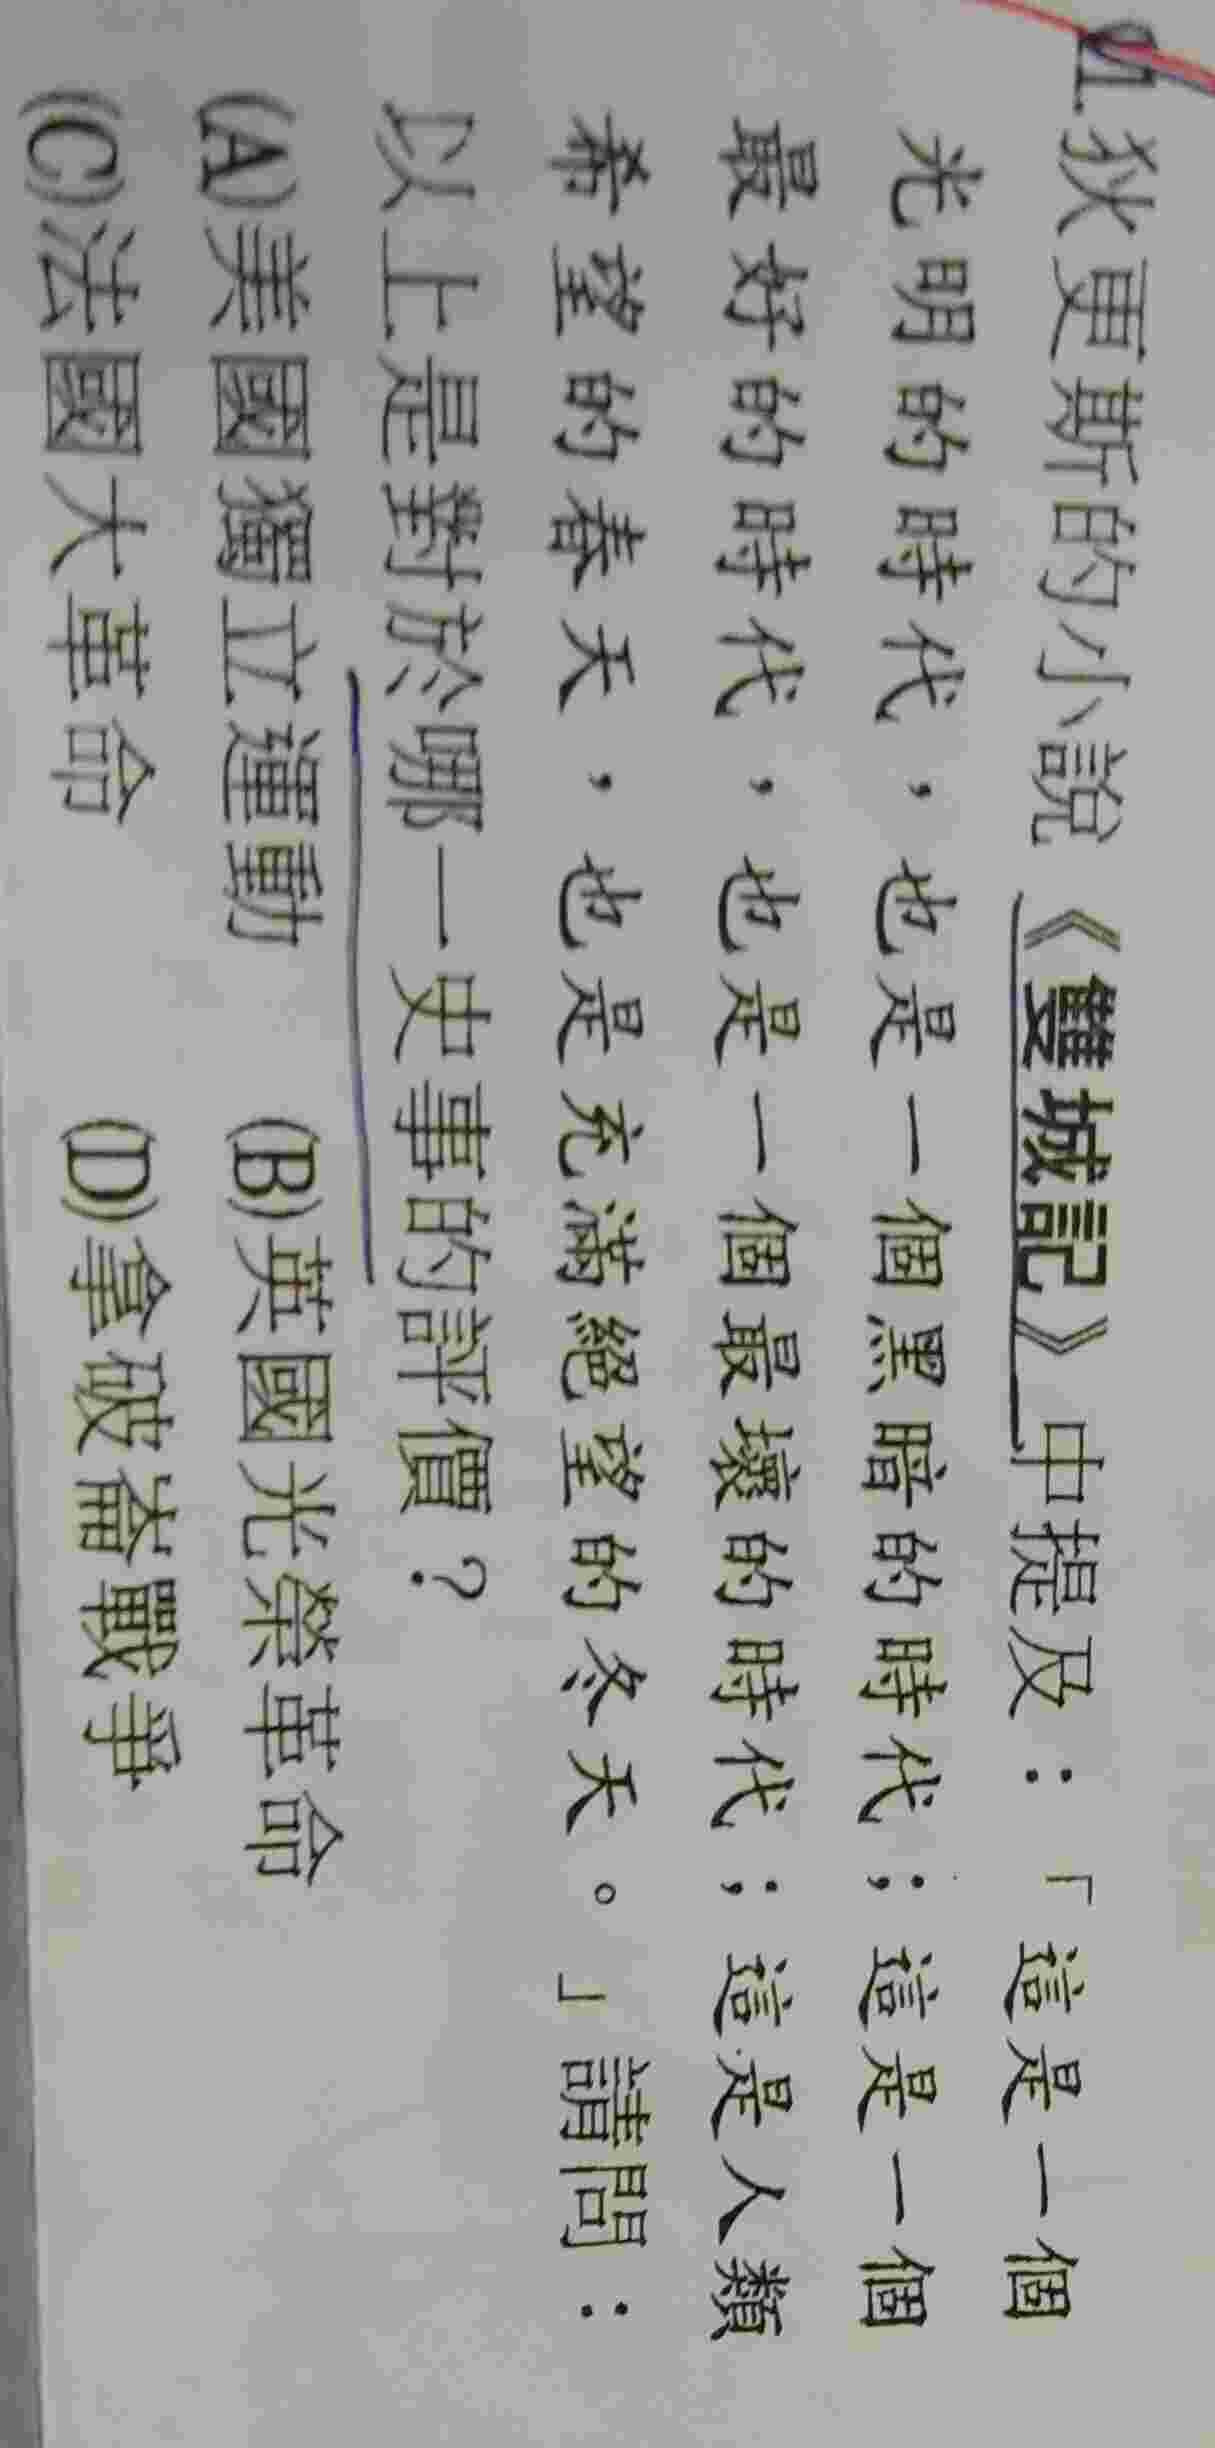 21.狄更斯的小說《雙城記》中提及：「這是一個
光明的時代，也是一個黑暗的時代；這是一個
最好的時代，也是一個最壞的時代；這是人類
希望的春天，也是充滿絕望的冬天。」請問：
以上是對於哪一史事的評價？
(A)美國獨立運動 (B)英國光榮革命
(C)法國大革命 (D)拿破崙戰爭